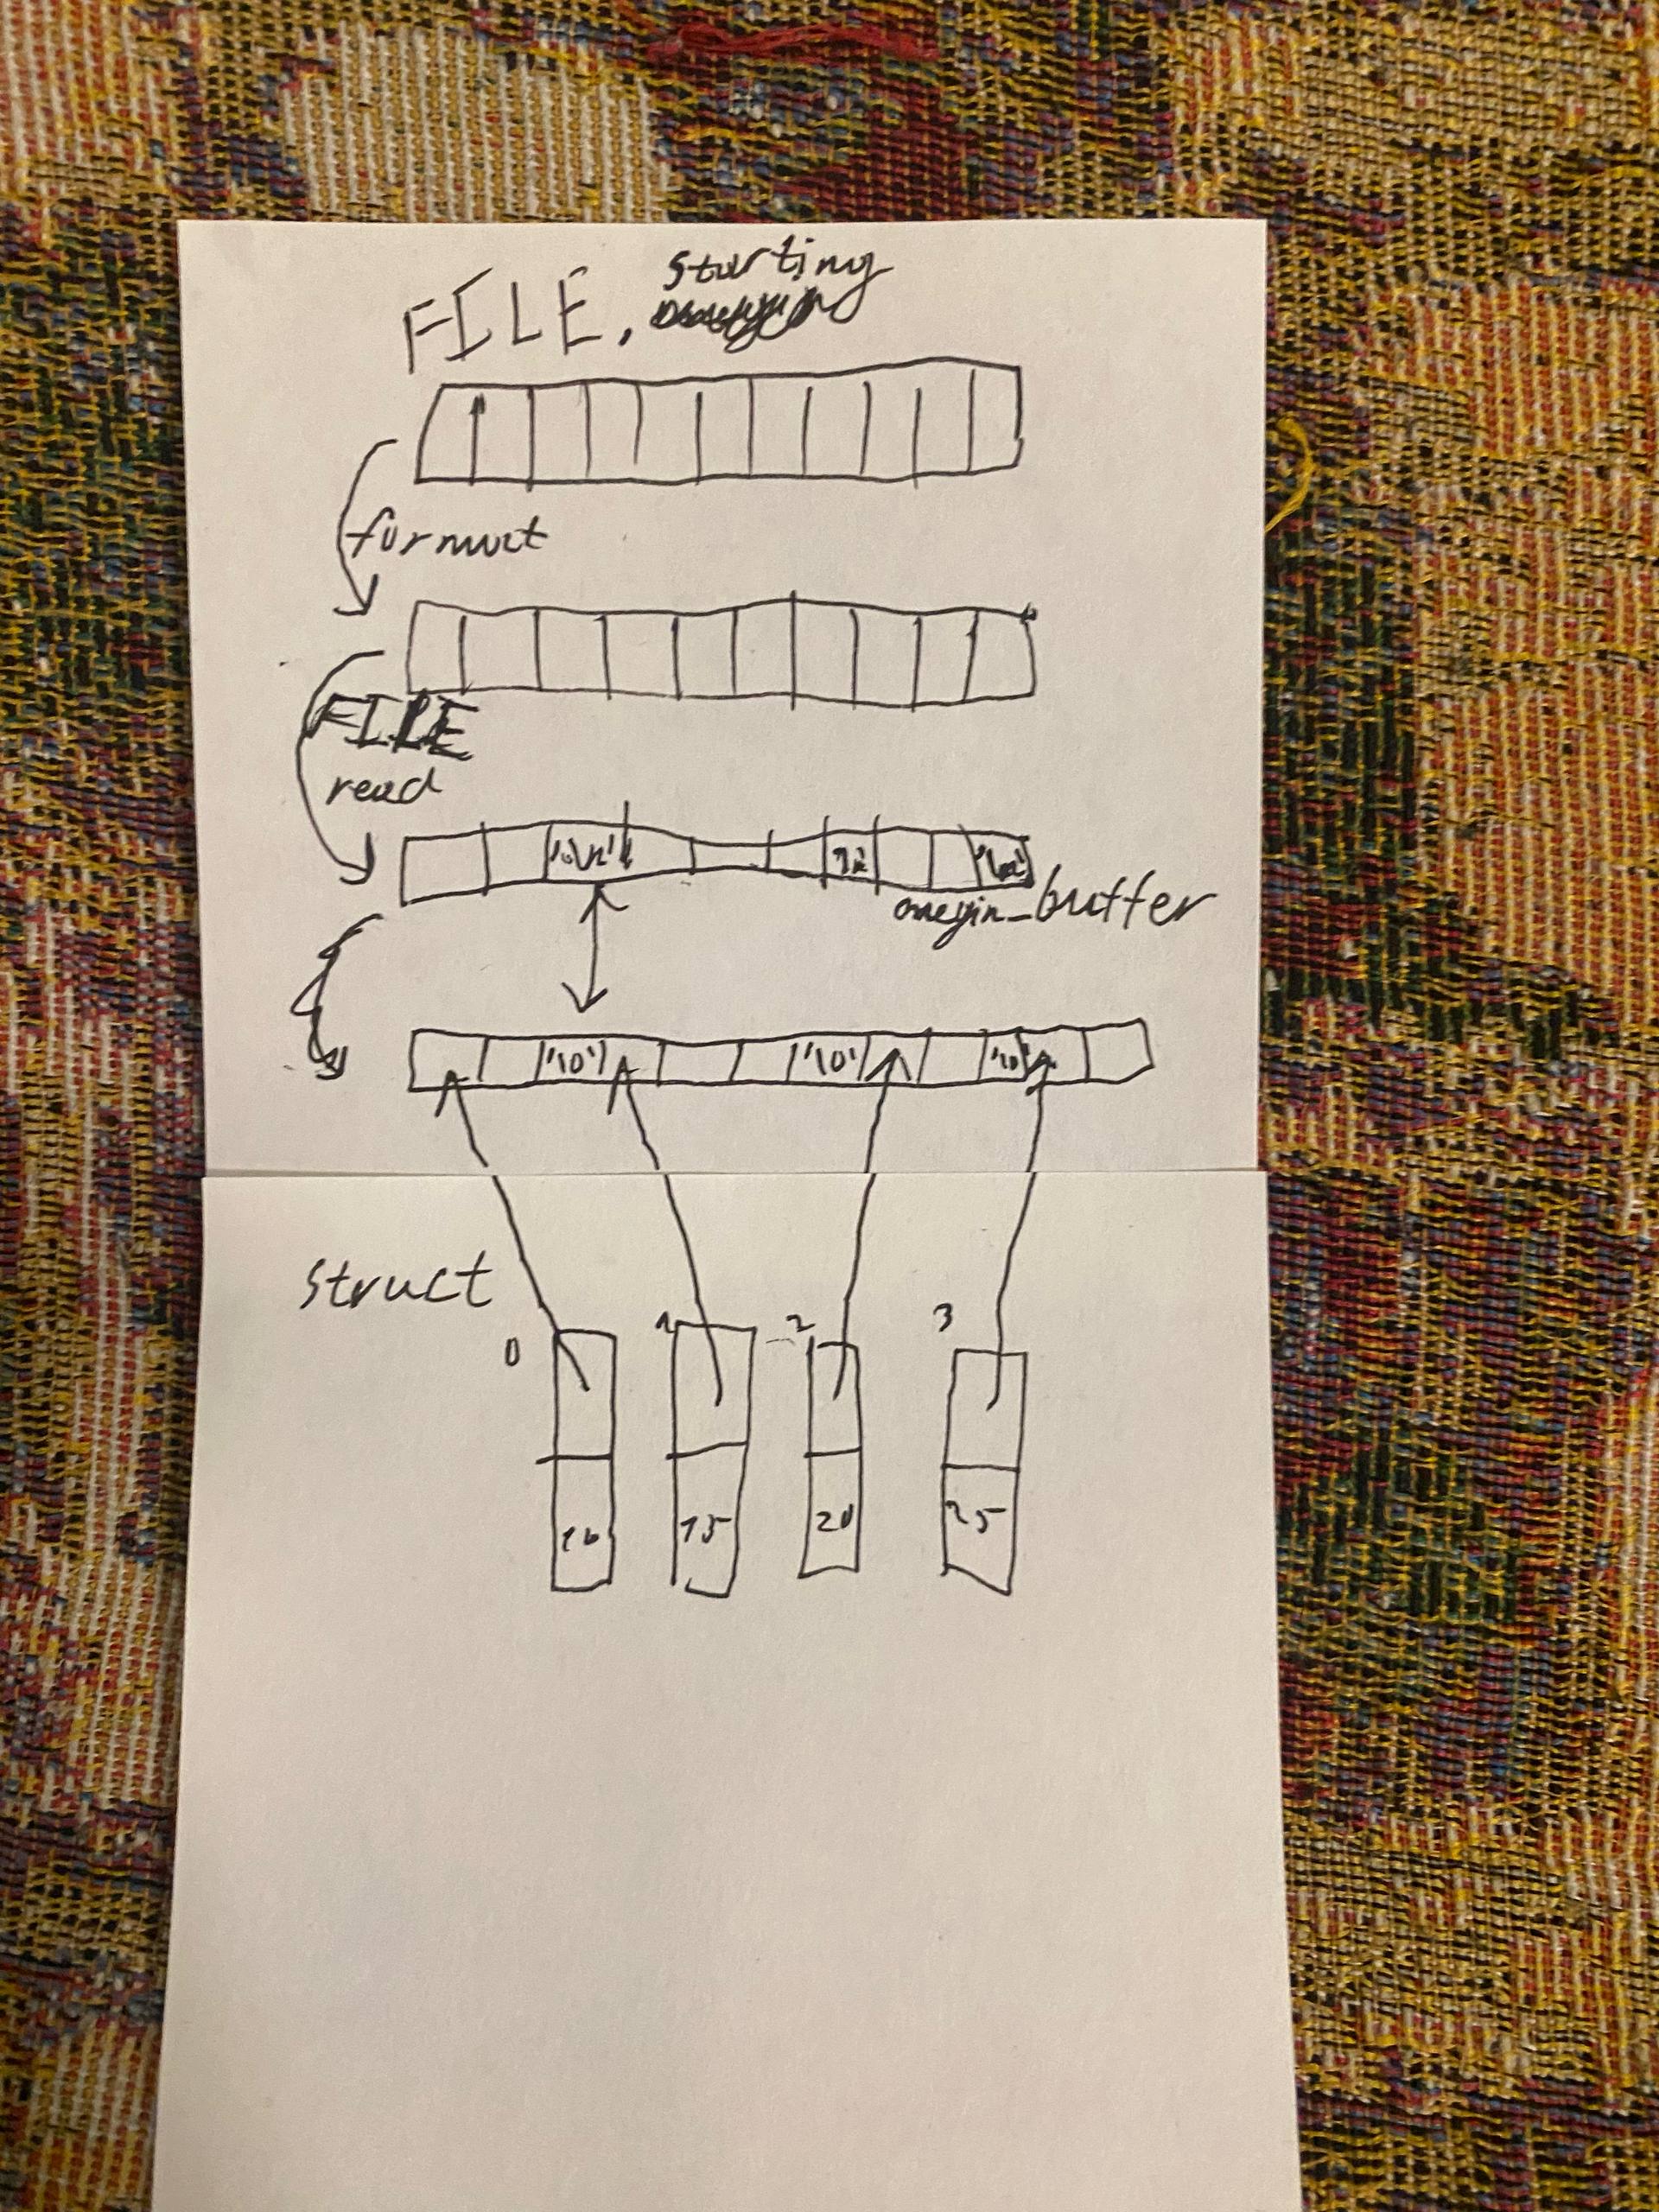 FILE. starting
format
FILE
read
'\n' '\n' '\n'
onegin_buffer
'\0' '\0' '\0'
struct
0 1 2 3
10 15 20 25